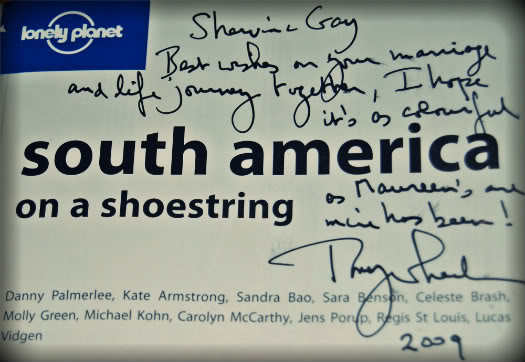 lonely planet
Sharvin & Gay
Best wishes on your marriage
and life journey together, I hope
it's as colourful
south america
as Maureen's and
on a shoestring
mine has been!
Tony Wheeler
Danny Palmerlee, Kate Armstrong, Sandra Bao, Sara Benson, Celeste Brash,
Molly Green, Michael Kohn, Carolyn McCarthy, Jens Porup, Regis St Louis, Lucas
Vidgen
2009